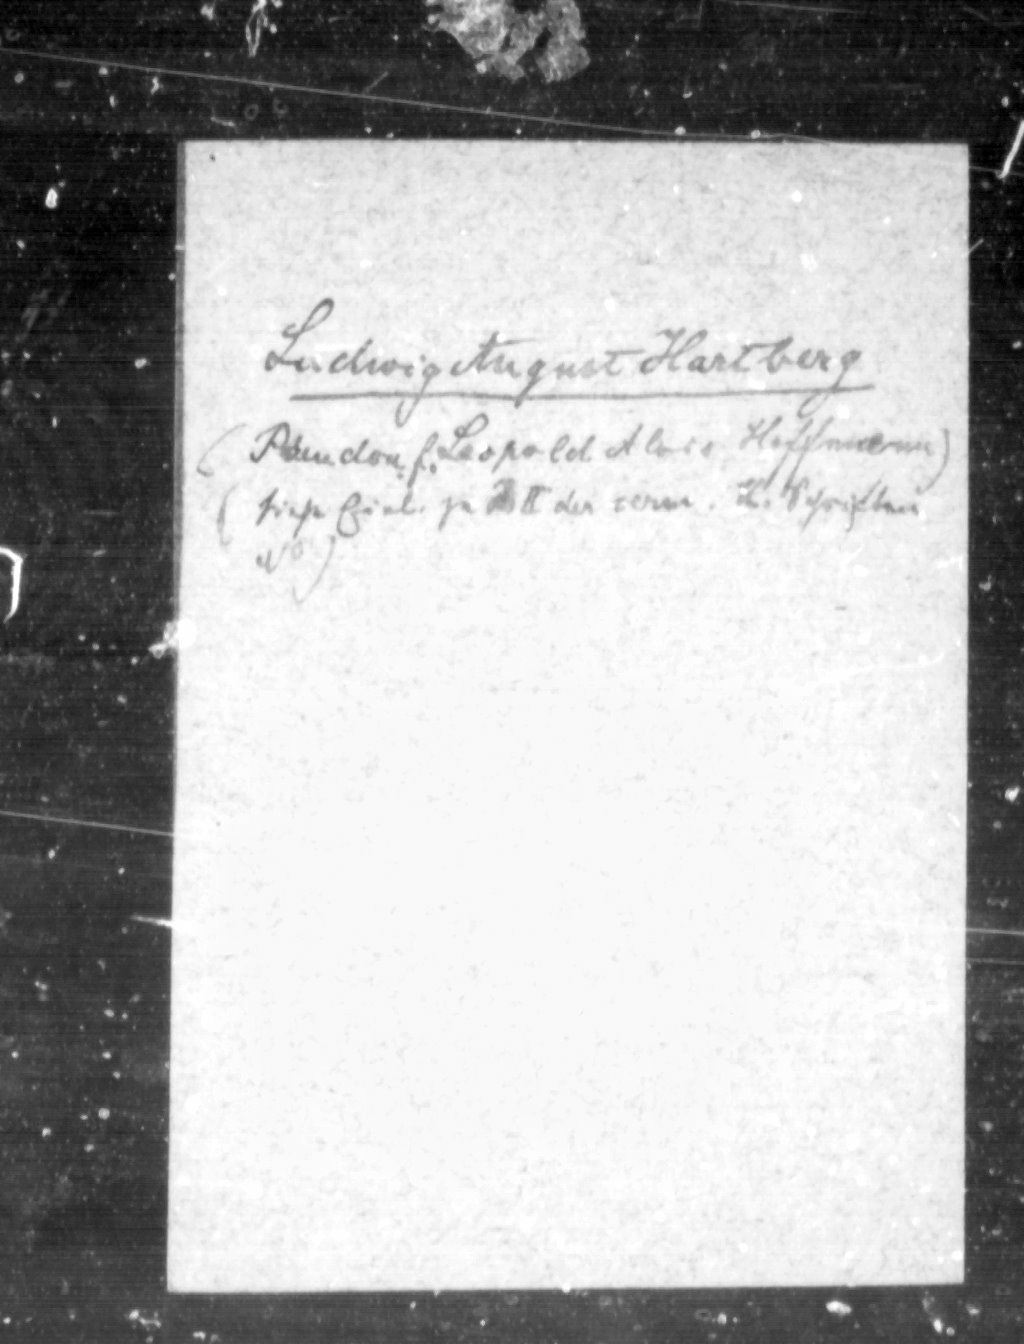 Ludwig August Hartberg
(Pseudon. f. Leopold Alois Hoffmann)
(siehe Einl. zu II der verm. H. Schriften
No)